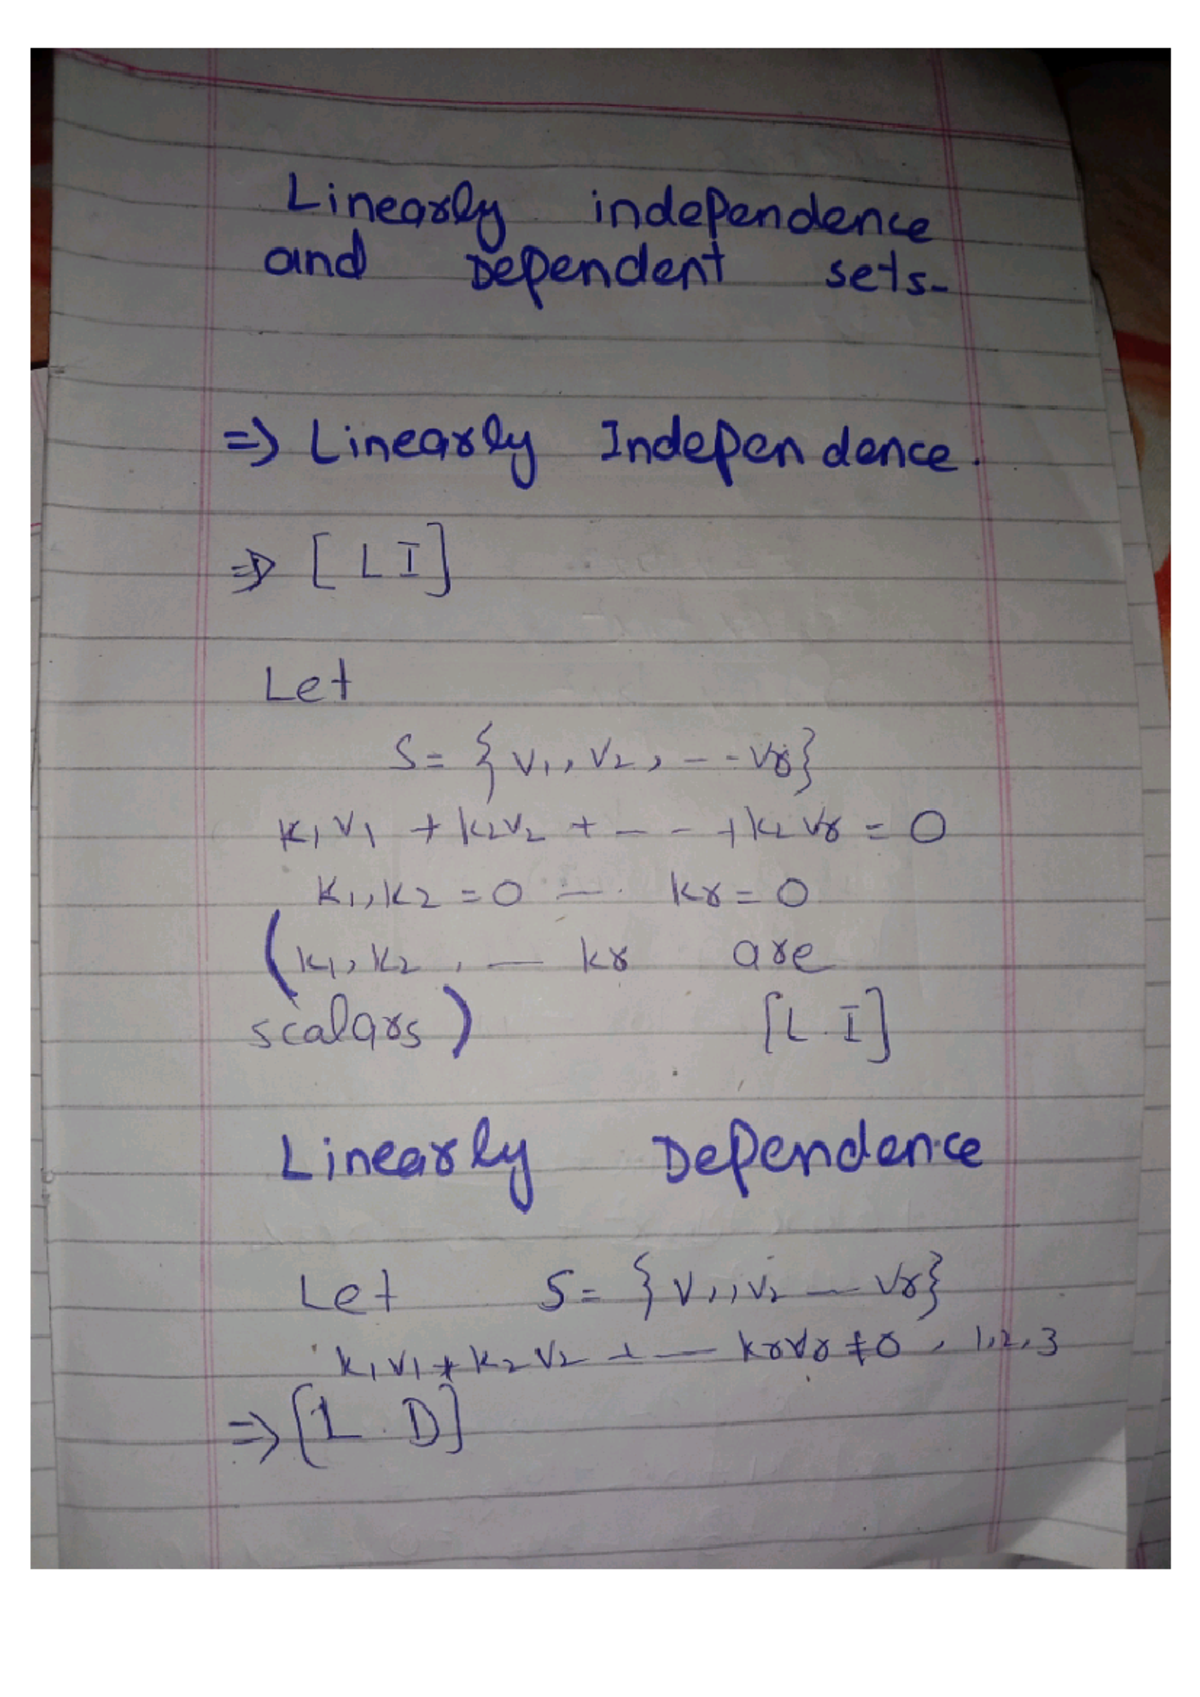 Linearly independence
and Dependent sets-
=> Linearly Independence.
=> [ L I ]
Let
S = { V1, V2, - - - Vr }
K1 V1 + K2 V2 + - - - + K2 Vr = 0
K1, K2 = 0 - - Kr = 0
( K1, K2, — Kr are
scalars ) [ L . I ]
Linearly Dependence
Let S = { V1, V2 — Vr }
K1 V1 + K2 V2 + — Kr Vr ≠ 0, 1, 2, 3
=> [ L . D ]